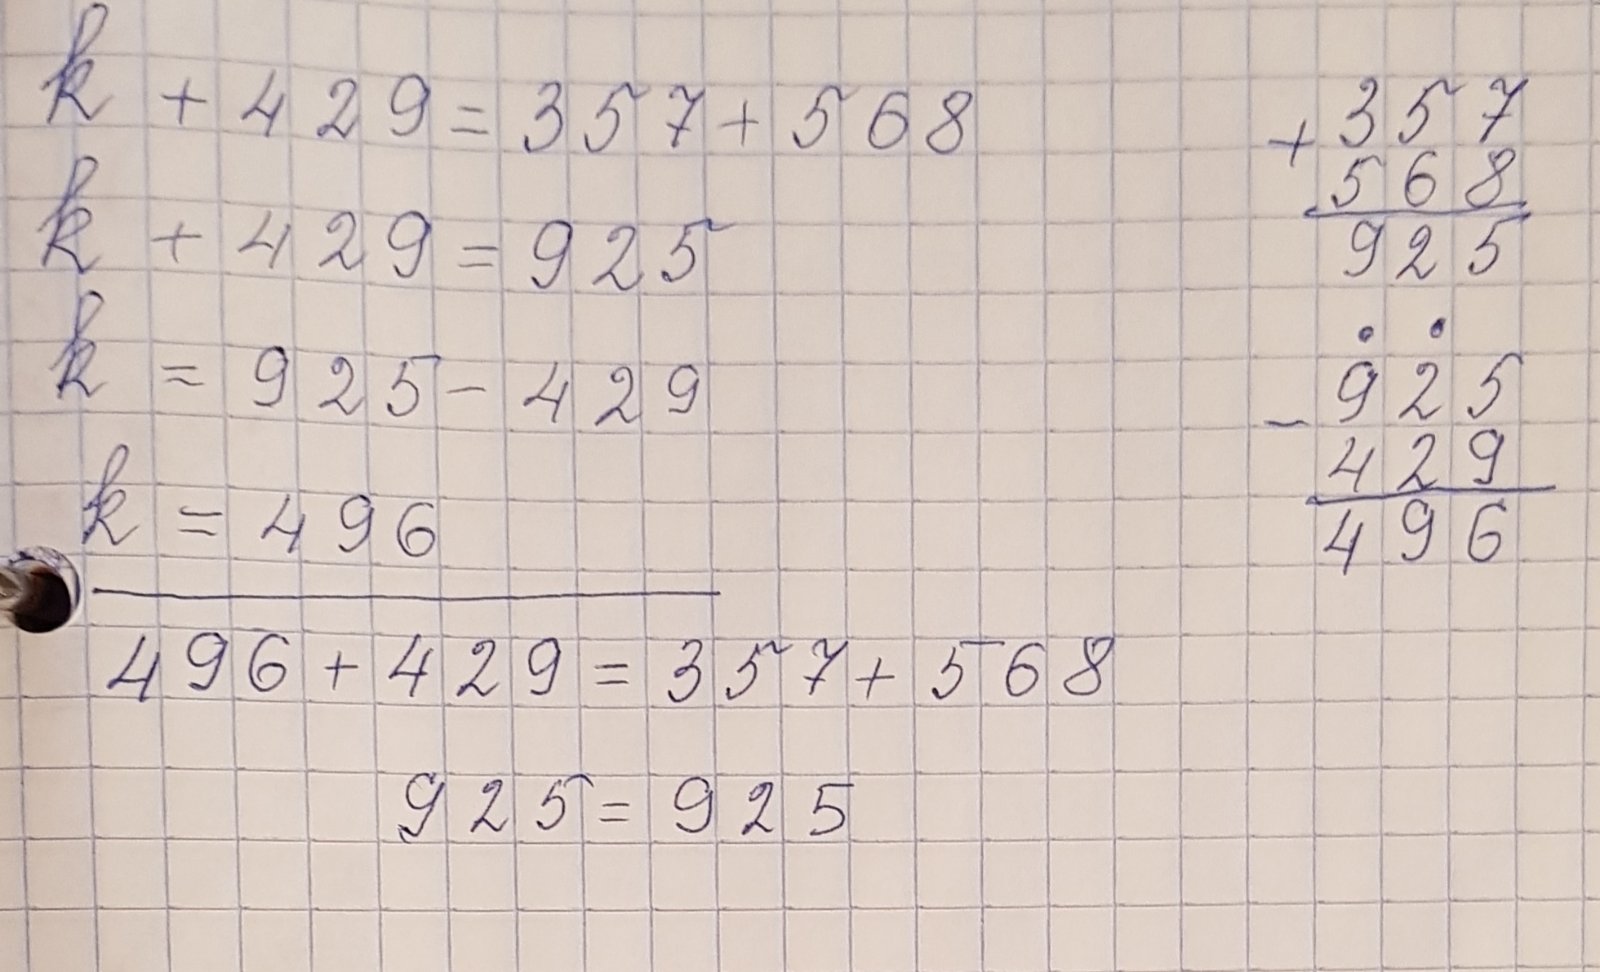 k + 429 = 357 + 568
k + 429 = 925
k = 925 - 429
k = 496
496 + 429 = 357 + 568
925 = 925
+ 357
568
925
- 925
429
496